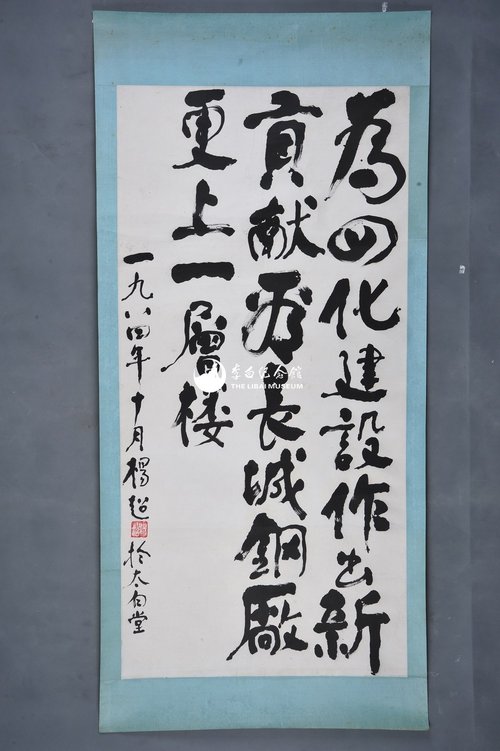 為四化建設作出新
貢献为長城鋼廠
更上一層楼
一九八四年十月楊超 於太白堂
李白纪念馆
THE LIBAI MUSEUM